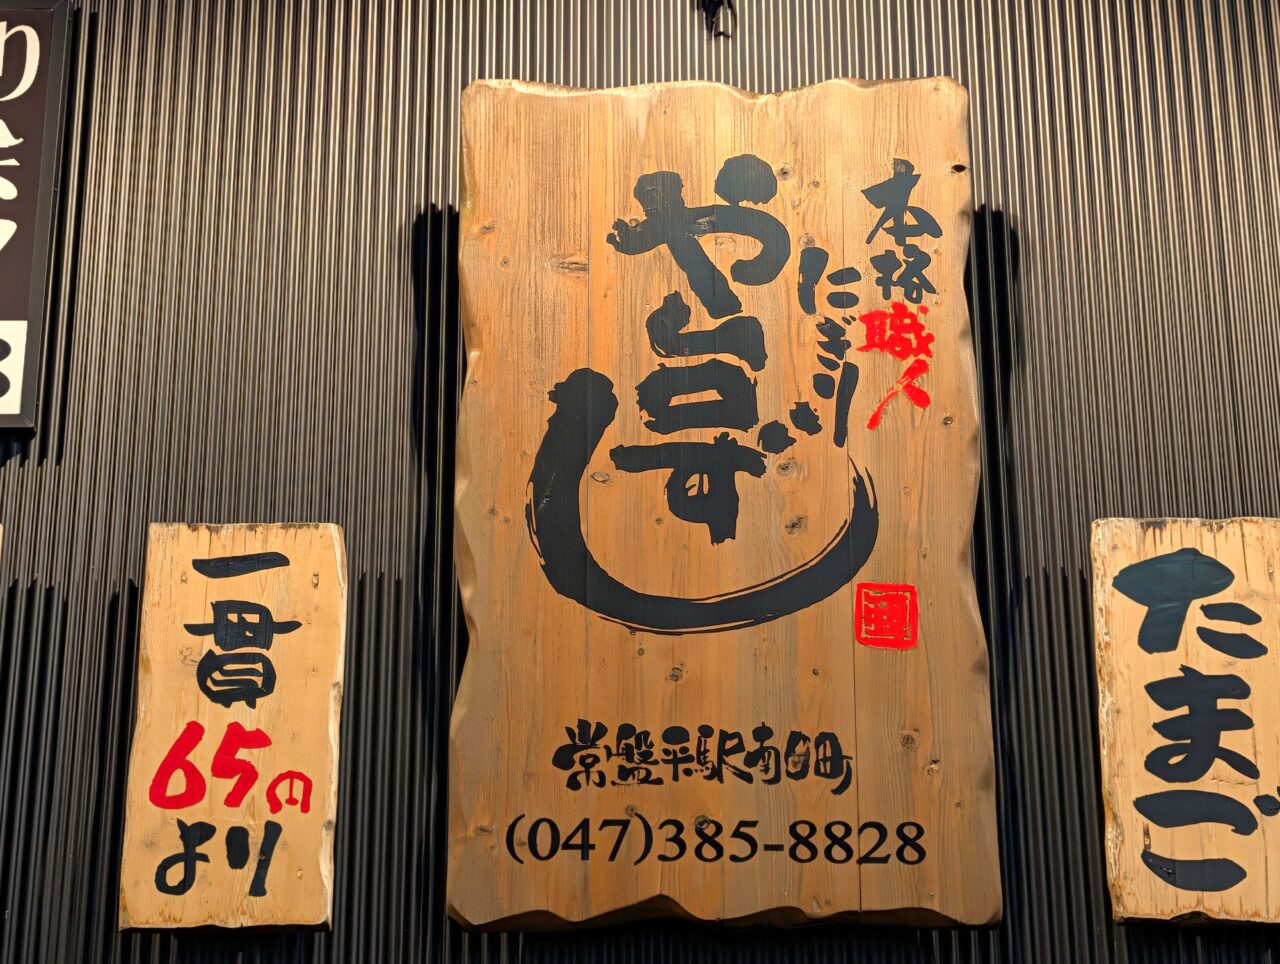 本格職人
にぎり
や台ずし
常盤平駅南口町
(047)385-8828
一貫
65円
より
たまご